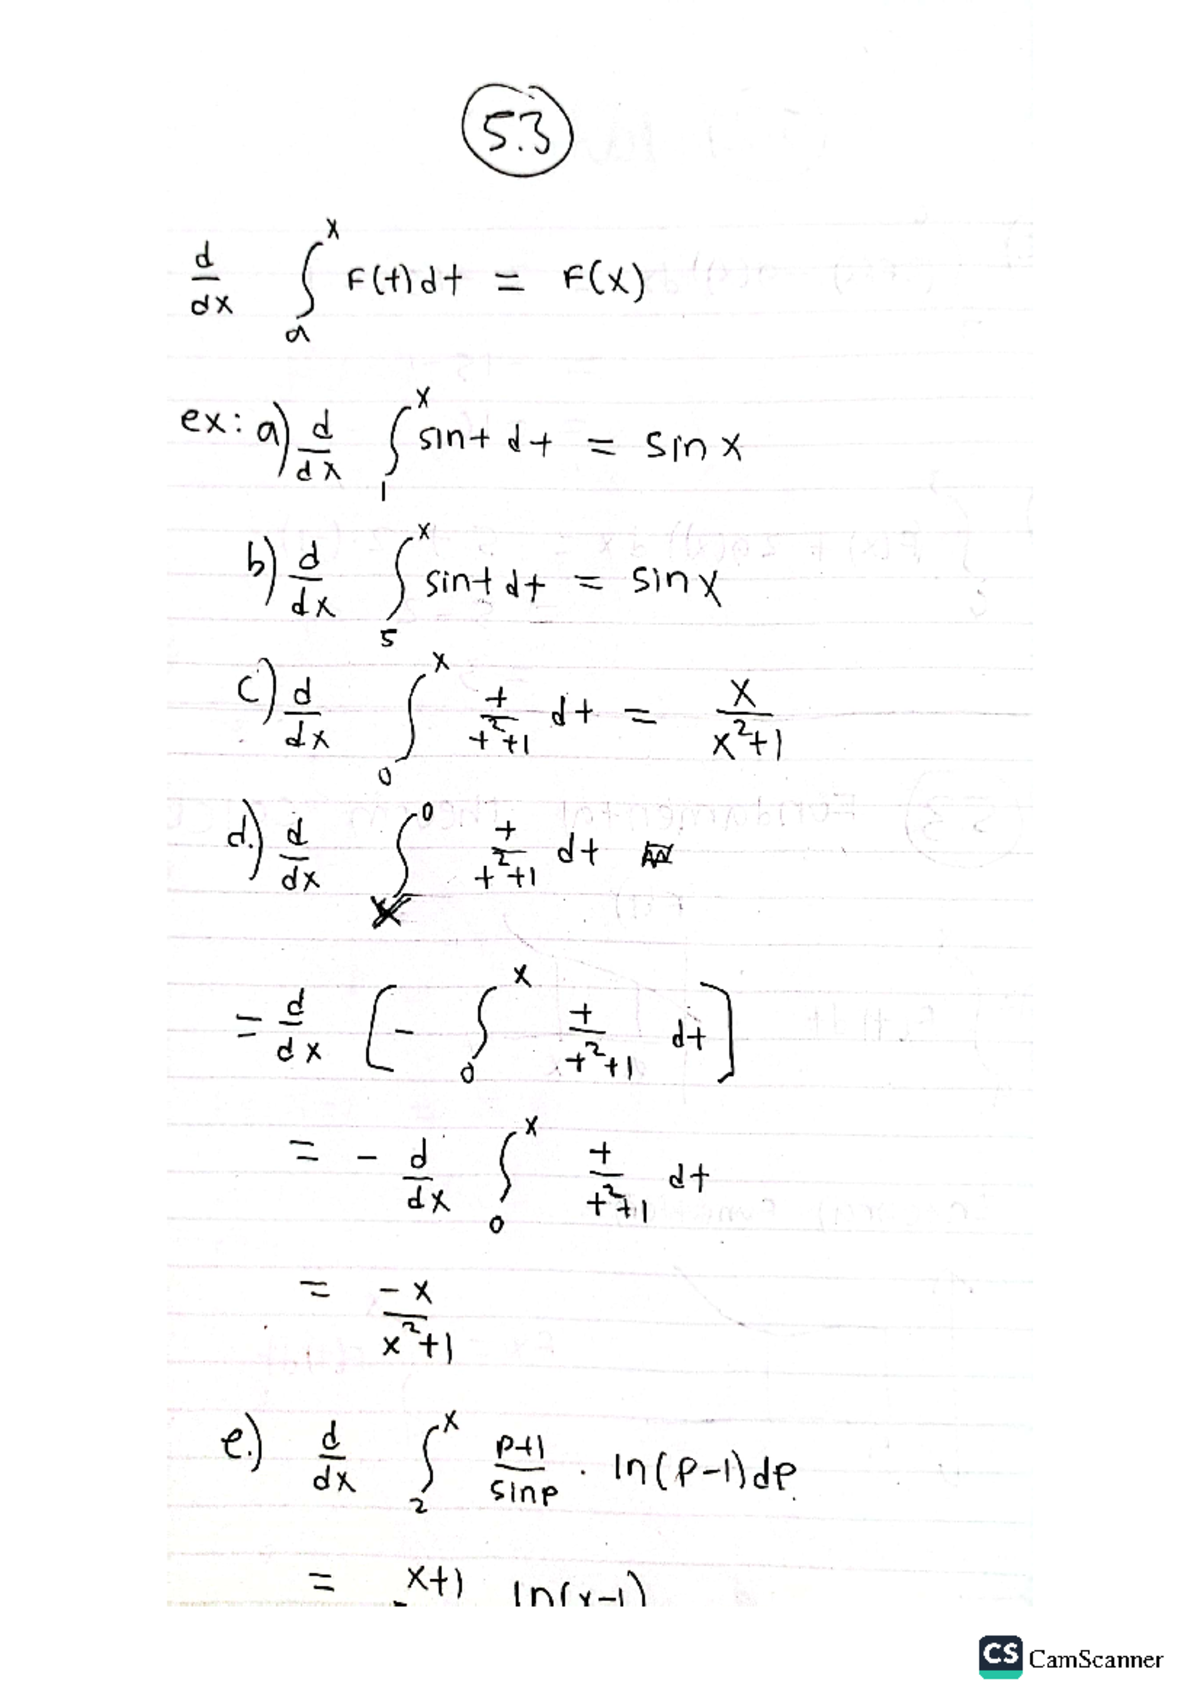 5.3
d/dx ∫_a^x F(t)dt = F(x)
ex: a) d/dx ∫_1^x sint dt = sin x
b) d/dx ∫_5^x sint dt = sin x
c) d/dx ∫_0^x t/(t²+1) dt = x/(x²+1)
d.) d/dx ∫_x^0 t/(t²+1) dt
= d/dx [ - ∫_0^x t/(t²+1) dt ]
= - d/dx ∫_0^x t/(t²+1) dt
= -x/(x²+1)
e.) d/dx ∫_2^x (p+1)/(sinp) · ln(p-1)dp.
= x+1 ln(x-1)
CS CamScanner